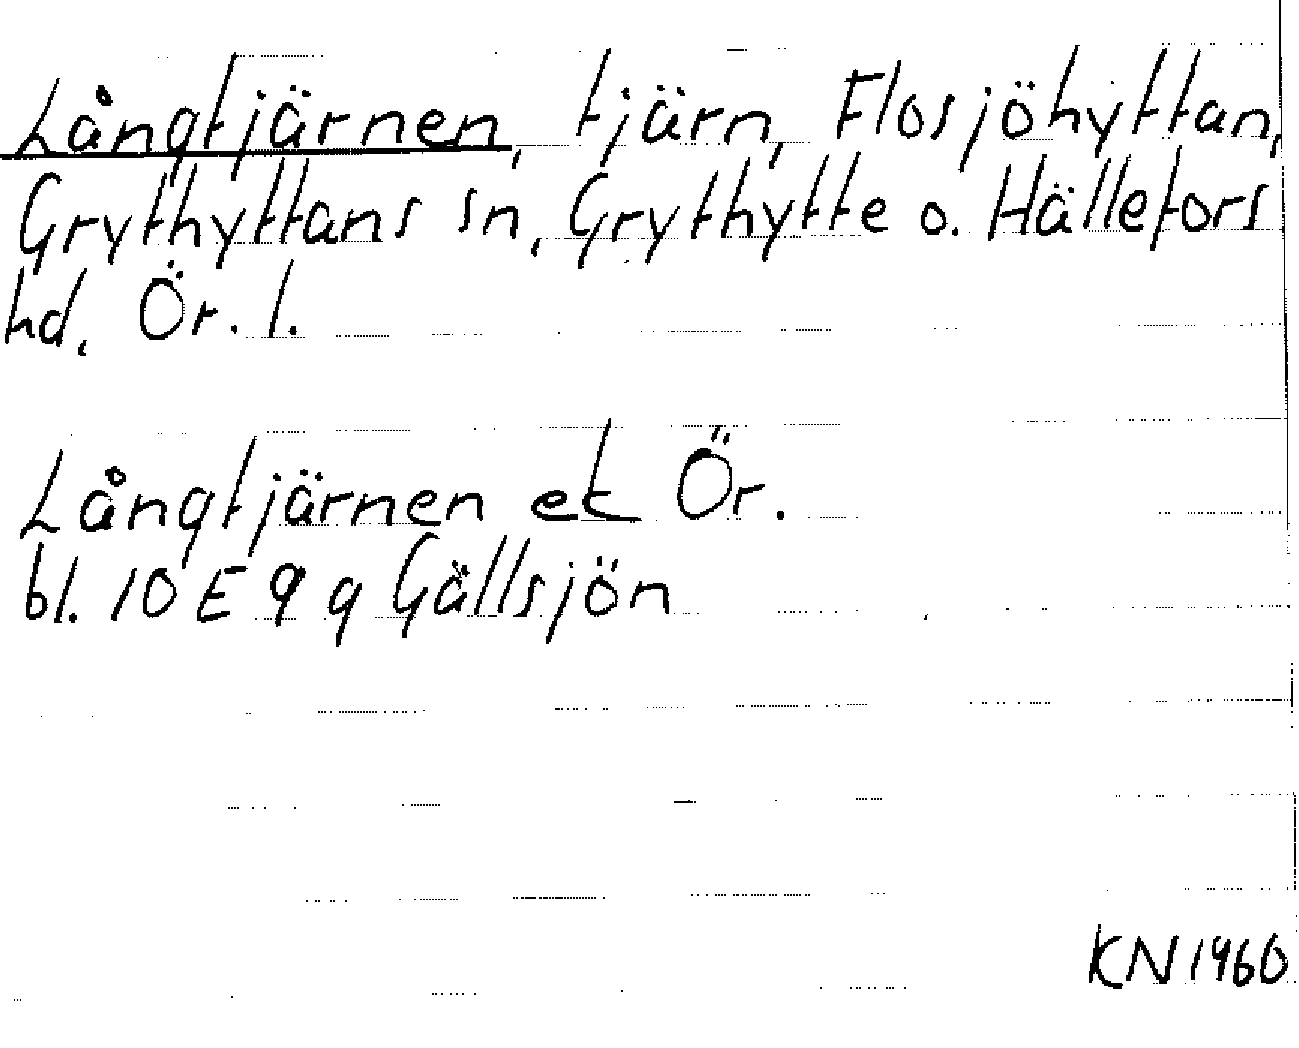 Långtjärnen, tjärn, Flosjöhyttan,
Grythyttans sn, Grythytte o. Hällefors
hd, Ör. l.
Långtjärnen ek Ör.
bl. 10 E 9 g Gällsjön
KN 1960